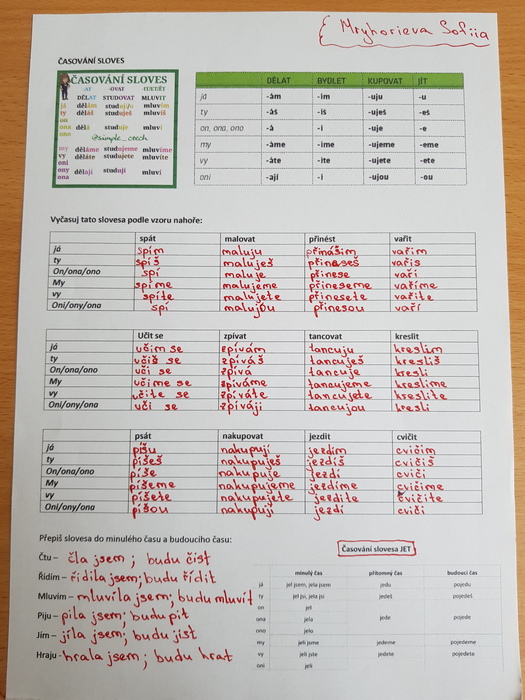 Mryhorieva Sofiia
ČASOVÁNÍ SLOVES
ČASOVÁNÍ SLOVES
-AT -OVAT -ET/ĚT/IT
DĚLAT STUDOVAT MLUVIT
já dělám studuji/u mluvím
ty děláš studuješ mluvíš
on
ona dělá studuje mluví
ono
@simple_czech
my děláme studujeme mluvíme
vy děláte studujete mluvíte
oni
ony dělají studují mluví
ona
DĚLAT BYDLET KUPOVAT JÍT
já -ám -ím -uju -u
ty -áš -íš -uješ -eš
on, ona, ono -á -í -uje -e
my -áme -íme -ujeme -eme
vy -áte -íte -ujete -ete
oni -ají -í -ujou -ou
Vyčasuj tato slovesa podle vzoru nahoře:
spát malovat přinést vařit
já spím maluju přináším vařím
ty spíš maluješ přineseš vařís
On/ona/ono spí maluje přinese vaří
My spíme malujeme přineseme vaříme
vy spíte malujete přinesete vaříte
Oni/ony/ona spí malujou přinesou vaří
Učit se zpívat tancovat kreslit
já učím se zpívám tancuju kreslím
ty učíš se zpíváš tancuješ kreslíš
On/ona/ono učí se zpívá tancuje kreslí
My učíme se zpíváme tancujeme kreslíme
vy učíte se zpíváte tancujete kreslíte
Oni/ony/ona učí se zpívájí tancujou kreslí
psát nakupovat jezdit cvičit
já píšu nakupují jezdím cvičím
ty píšeš nakupuješ jezdíš cvičíš
On/ona/ono píše nakupuje jezdí cvičí
My píšeme nakupujeme jezdíme cvičíme
vy píšete nakupujete jezdíte cvičíte
Oni/ony/ona píšou nakupují jezdí cvičí
Přepiš slovesa do minulého času a budoucího času:
Časování slovesa JET
Čtu – čla jsem; budu číst
Řídím – řídila jsem; budu řídit
Mluvím – mluvíla jsem; budu mluvít
Piju – pila jsem; budu pít
Jím – jíla jsem; budu jíst
Hraju – hrala jsem; budu hrat
minulý čas přítomný čas budoucí čas
já jel jsem, jela jsem jedu pojedu
ty jel jsi, jela jsi jedeš pojedeš
on jel
ona jela jede pojede
ono jelo
my jeli jsme jedeme pojedeme
vy jeli jste jedete pojedete
oni jeli